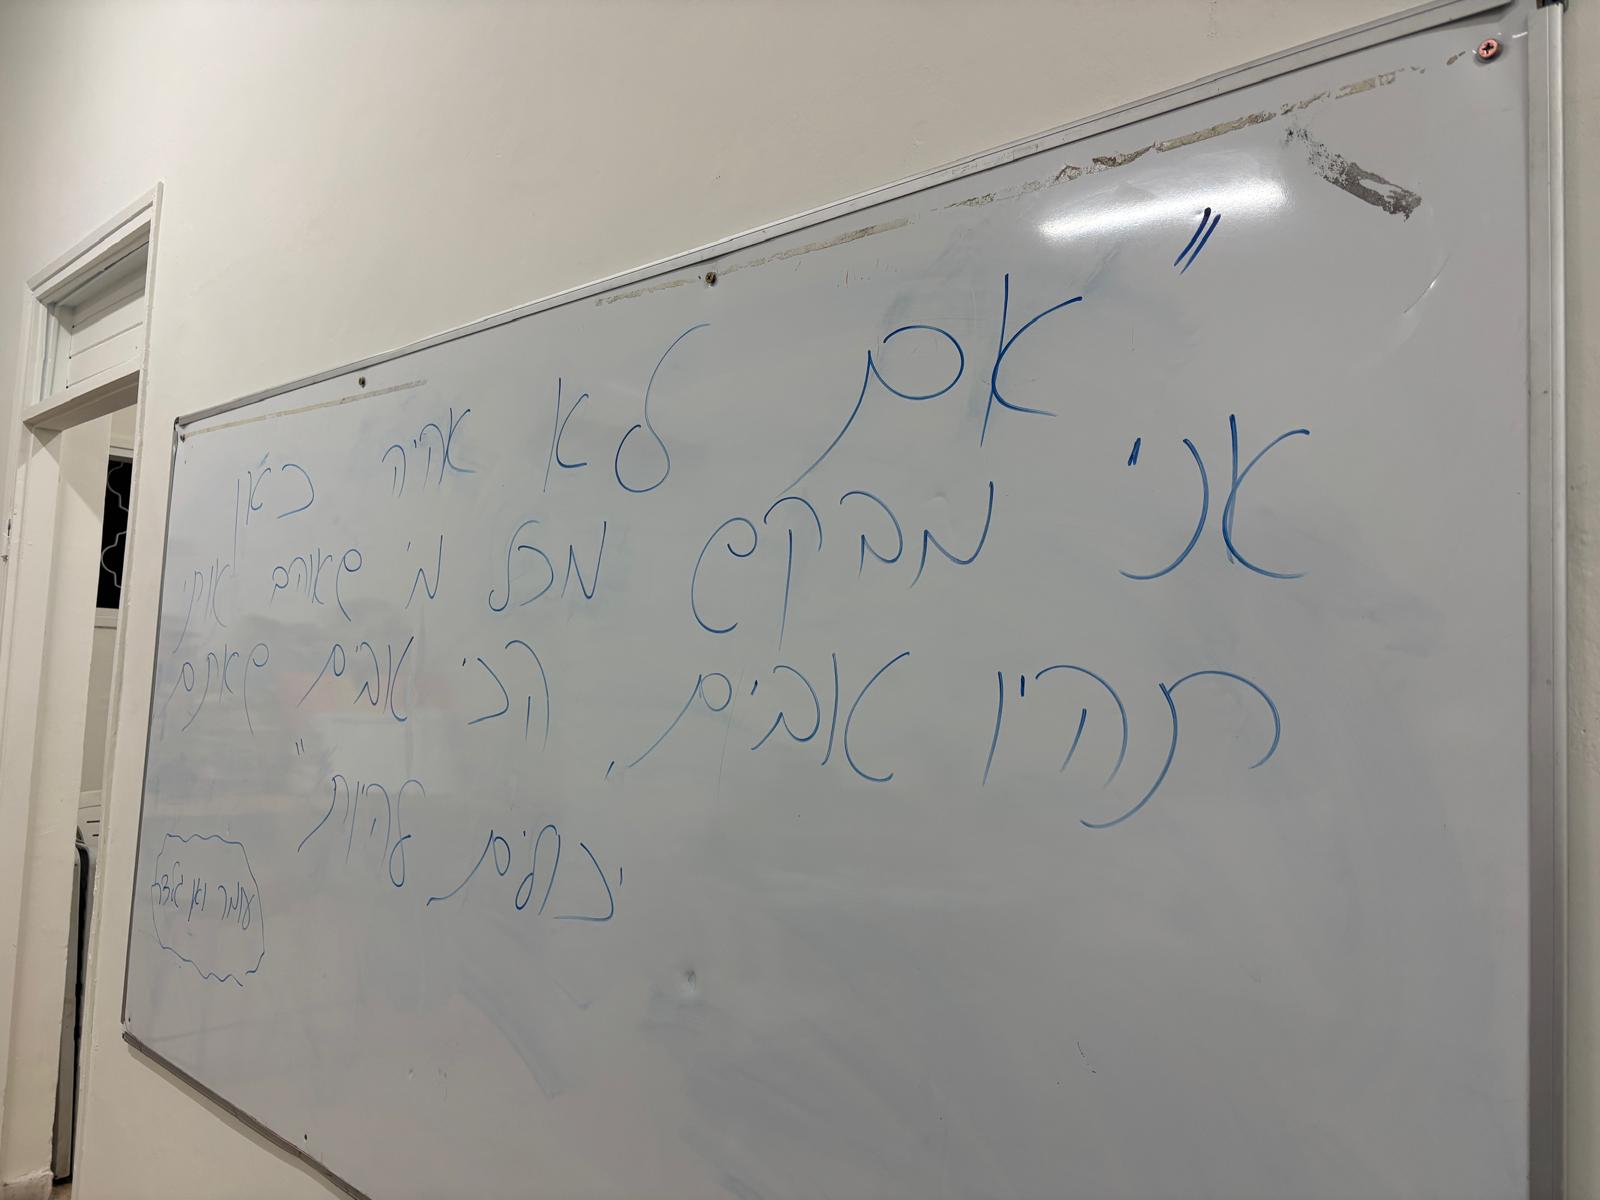 "אם לא אהיה כאן
אני מבקש מכל מי שאוהב אותי
תהיו טובים, הכי טובים שאתם
יכולים להיות"
עומר ואן גלדר